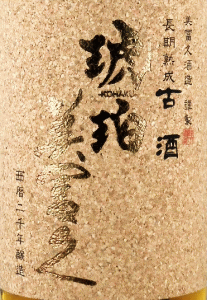 美冨久酒造 謹製
長期熟成
古酒
琥珀
KOHAKU
美冨久
西暦二千年醸造